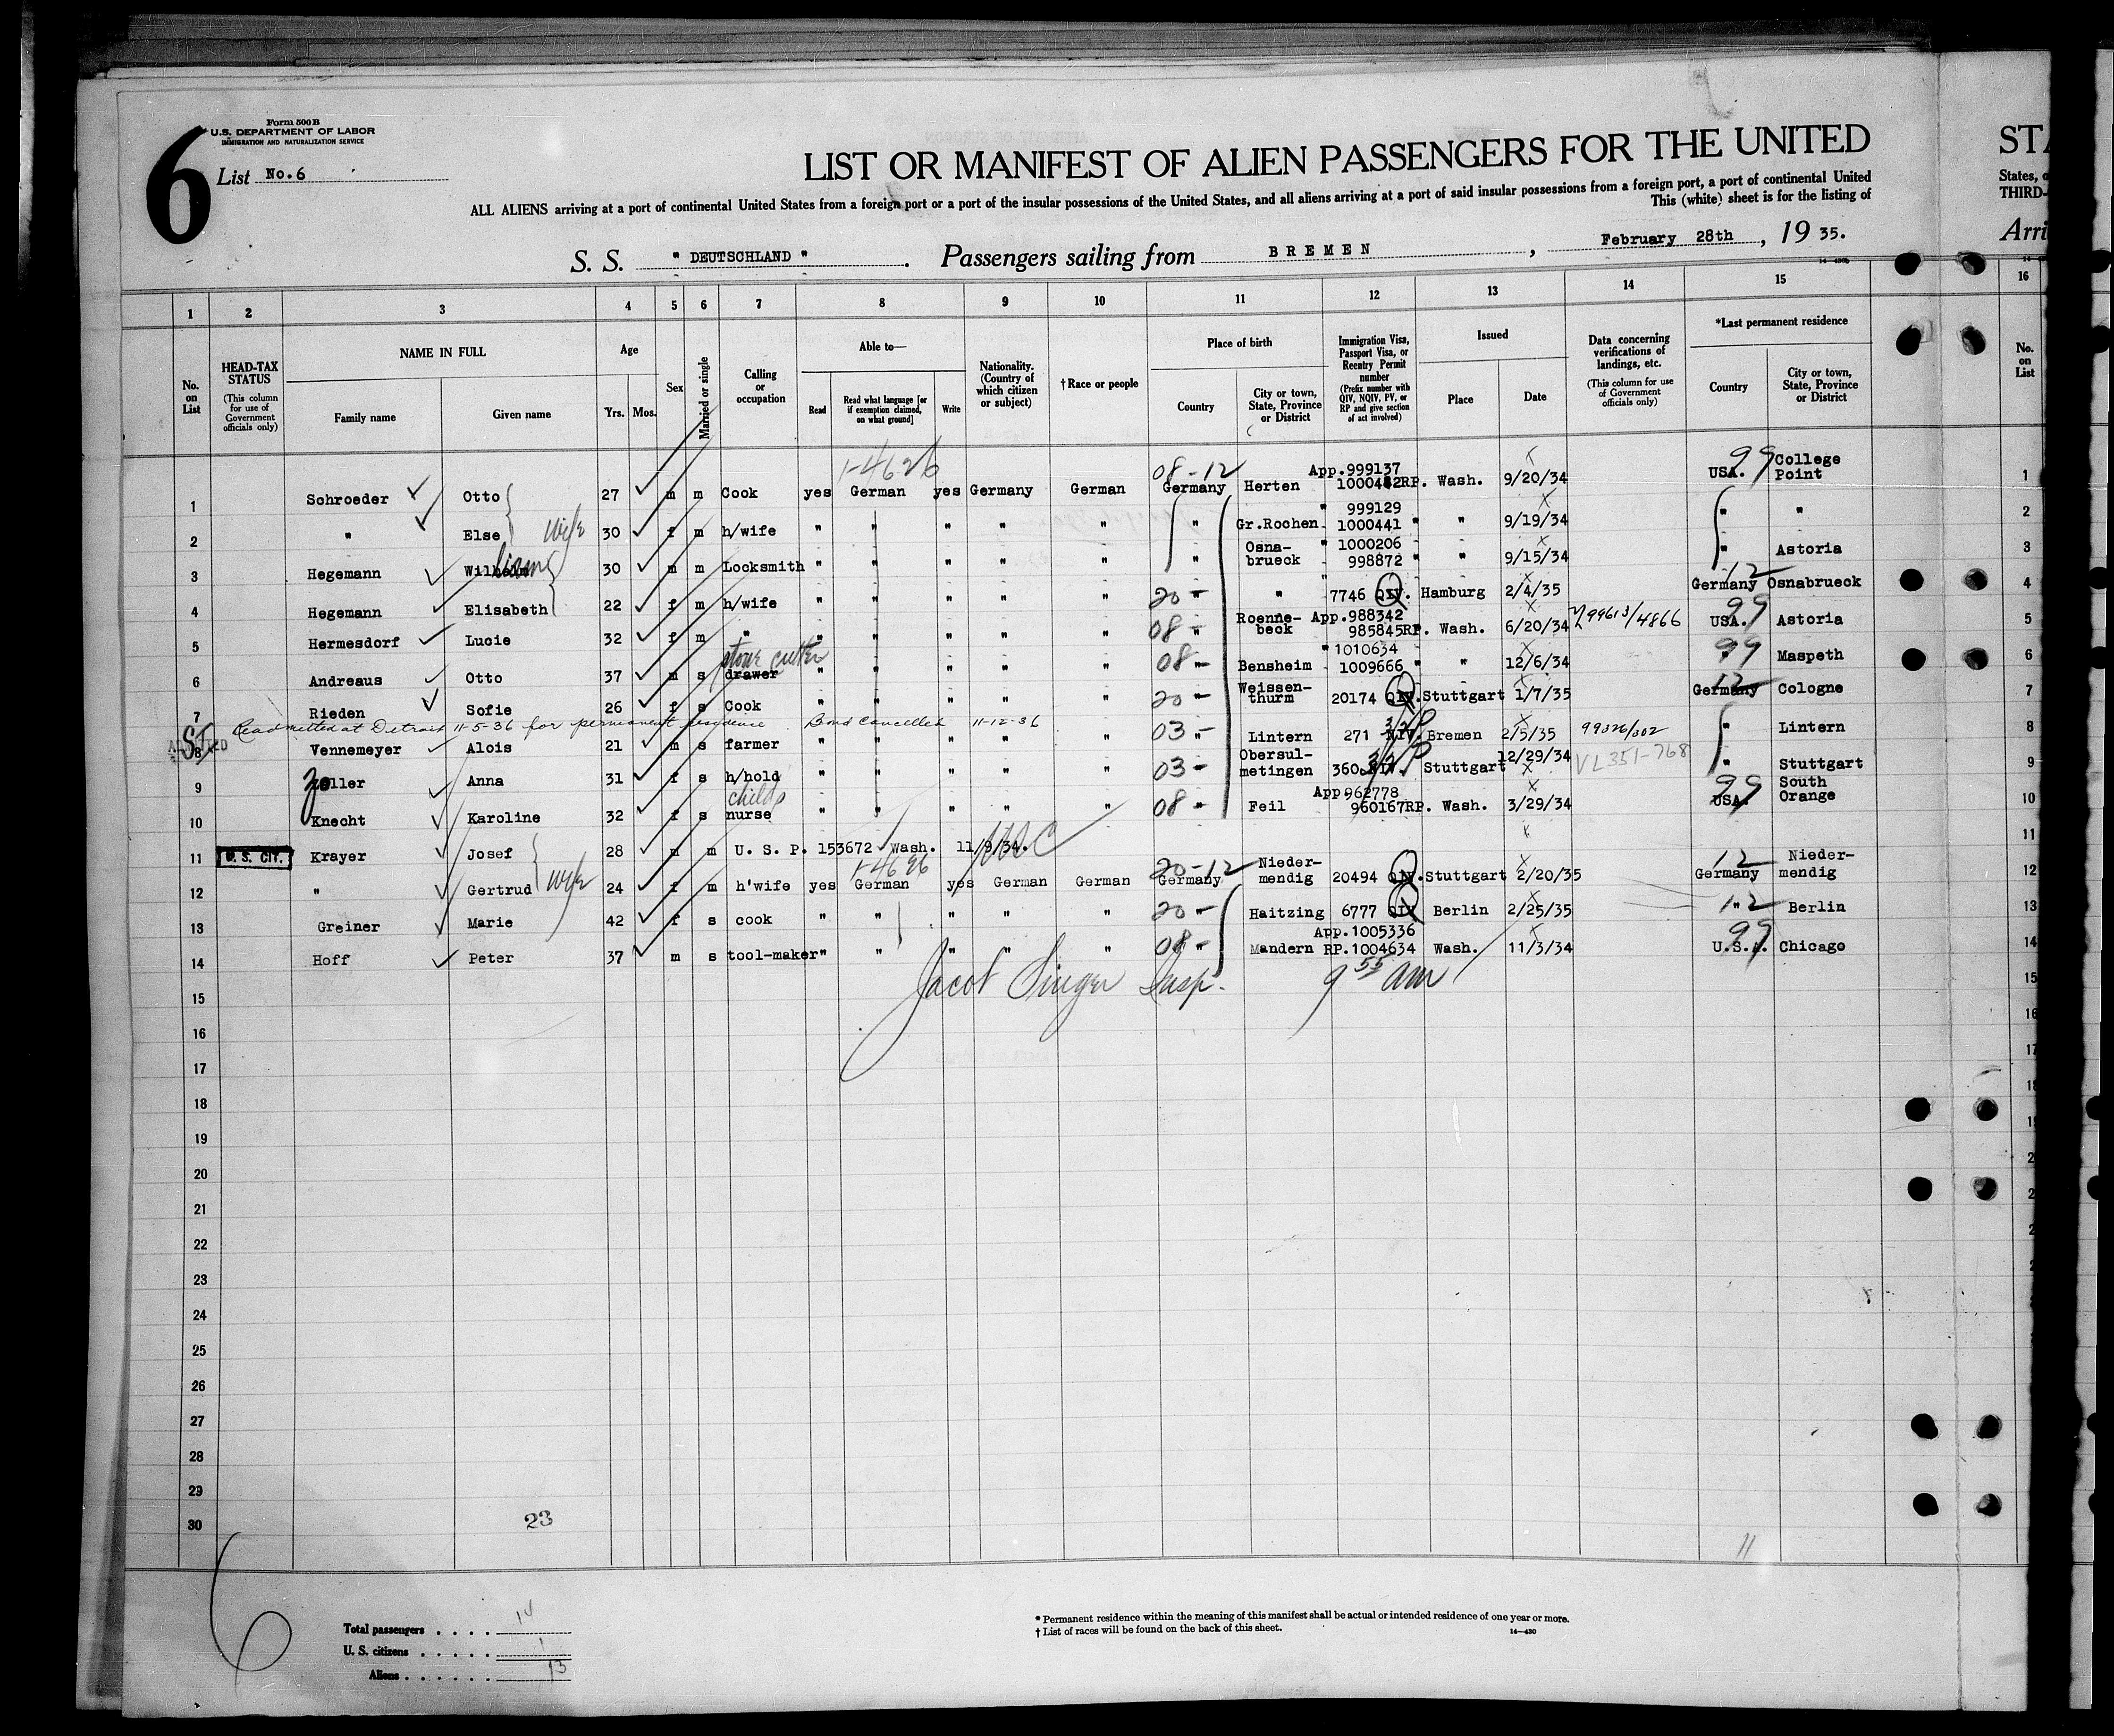 6
Form 500 B
U.S. DEPARTMENT OF LABOR
IMMIGRATION AND NATURALIZATION SERVICE
List No.6
LIST OR MANIFEST OF ALIEN PASSENGERS FOR THE UNITED
STA
ALL ALIENS arriving at a port of continental United States from a foreign port or a port of the insular possessions of the United States, and all aliens arriving at a port of said insular possessions from a foreign port, a port of continental United
States, o
This (white) sheet is for the listing of
THIRD-
S. S. " DEUTSCHLAND " . Passengers sailing from BREMEN , February 28th , 19 35.
Arri
1 2 3 4 5 6 7 8 9 10 11 12 13 14 15 16
No. on List
HEAD-TAX STATUS (This column for use of Government officials only)
NAME IN FULL Family name Given name
Age Yrs. Mos.
Sex
Married or single
Calling or occupation
Able to— Read Read what language [or if exemption claimed, on what ground] Write
Nationality. (Country of which citizen or subject)
† Race or people
Place of birth Country City or town, State, Province or District
Immigration Visa, Passport Visa, or Reentry Permit number (Prefix number with QIV, NQIV, PV, or RP and give section of act involved)
Issued Place Date
Data concerning verifications of landings, etc. (This column for use of Government officials only)
*Last permanent residence Country City or town, State, Province or District
No. on List
1-4626 08-12 99
1 Schroeder Otto 27 m m Cook yes German yes Germany German Germany Herten App.999137 1000442RP. Wash. 9/20/34 USA. College Point 1
2 " Else wife 30 f m h/wife " " " " " " Gr.Rochen " 999129 1000441 " " 9/19/34 " " 2
3 Hegemann Wilhelm liam 30 m m Locksmith " " " " " " Osna-brueck " 1000206 998872 " " 9/15/34 " Astoria 3
4 Hegemann Elisabeth 22 f m h/wife " " " " " 20 - " 7746 QIV. Hamburg 2/4/35 12 Germany Osnabrueck 4
5 Hermesdorf Lucie 32 f m " " " " " " 08 - " Roenne-beck App.988342 985845RP. Wash. 6/20/34 99613/4866 99 USA. Astoria 5
stone cutter
6 Andreaus Otto 37 m s drawer " " " " " 08 - " Bensheim " 1010634 1009666 " " 12/6/34 99 " Maspeth 6
7 Rieden Sofie 26 f s Cook " " " " " 20 - " Weissen-thurm 20174 QIV. Stuttgart 1/7/35 12 Germany Cologne 7
Readmitted at Detroit 11-5-36 for permanent residence Bond Cancelled 11-12-36
SI ADMITTED
8 Vennemeyer Alois 21 m s farmer " " " " " 03 - " Lintern 271 NIV. 3/2 P Bremen 2/5/35 99326/302 " Lintern 8
9 Zeller Anna 31 f s h/hold " " " " " 03 - " Obersul-metingen 360 3/2 P Stuttgart 12/29/34 VL 351-768 " Stuttgart 9
child's
10 Knecht Karoline 32 f s nurse " " " " " 08 - " Feil App.962778 960167RP. Wash. 3/29/34 99 USA. South Orange 10
11 U. S. CIT. Krayer Josef 28 m m U. S. P. 153672 Wash. 11/9/34. USC 11
1-4696 20-12 12
12 " Gertrud wife 24 f m h'wife yes German yes German German Germany Nieder-mendig 20494 QIV. Stuttgart 2/20/35 Germany Nieder-mendig 12
13 Greiner Marie 42 f s cook " " " " " 20 - " Haitzing 6777 QIV Berlin 2/25/35 12 " Berlin 13
14 Hoff Peter 37 m s tool-maker " " " " " 08 - " Mandern App.1005336 RP.1004634 Wash. 11/3/34 99 U.S.A. Chicago 14
Jacob Singer Insp. 9 55 am
15 15
16 16
17 17
18 18
19 19
20 2
21 2
22 2
23 2
24
25
26
27
28
29
30
23
11
6
Total passengers . . . . 14
U. S. citizens . . . . . 1
Aliens . . . . . . 13
* Permanent residence within the meaning of this manifest shall be actual or intended residence of one year or more.
† List of races will be found on the back of this sheet.
14—430